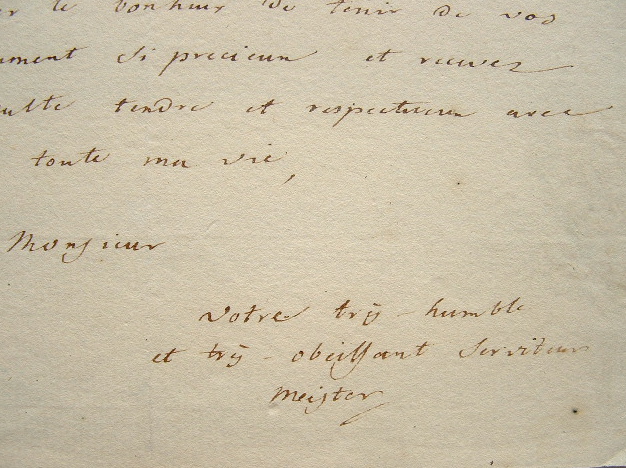 le bonheur de tenir de vos
si precieux et recevez
tendre et respectueux avec
toute ma vie,
Monsieur
votre très-humble
et très-obeissant serviteur
Meister